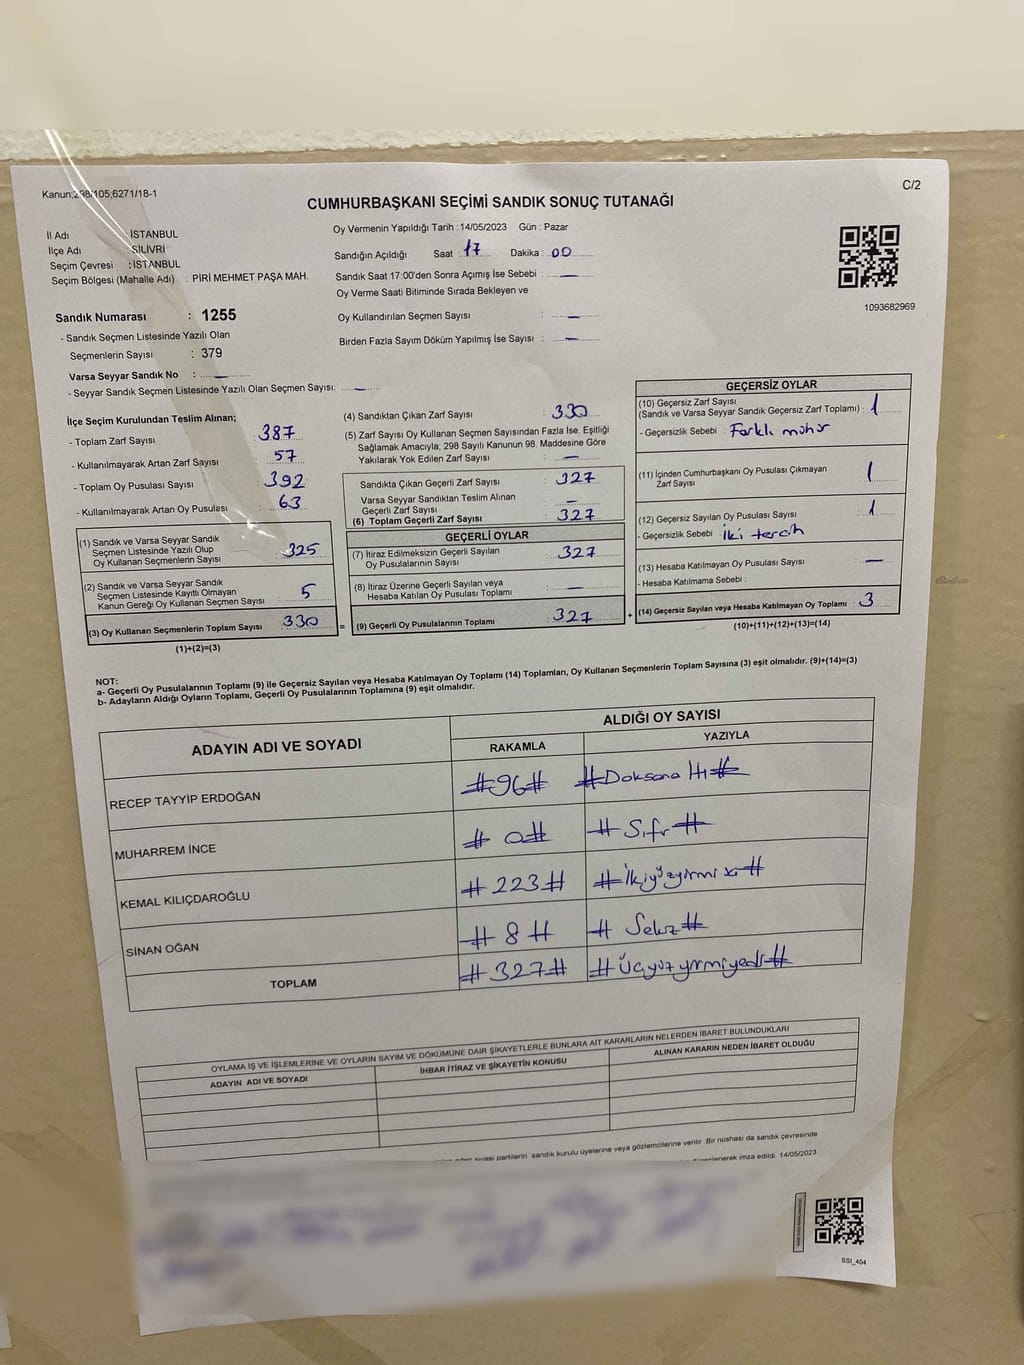 Kanun;298/105;6271/18-1
C/2
CUMHURBAŞKANI SEÇİMİ SANDIK SONUÇ TUTANAĞI
İl Adı : İSTANBUL
İlçe Adı : SİLİVRİ
Seçim Çevresi : İSTANBUL
Seçim Bölgesi (Mahalle Adı) : PİRİ MEHMET PAŞA MAH.
Oy Vermenin Yapıldığı Tarih :14/05/2023 Gün : Pazar
Sandığın Açıldığı Saat : 17 Dakika : 00
Sandık Saat 17:00'den Sonra Açımış İse Sebebi : —
Oy Verme Saati Bitiminde Sırada Bekleyen ve
Oy Kullandırılan Seçmen Sayısı : —
Birden Fazla Sayım Döküm Yapılmış İse Sayısı : —
1093682969
Sandık Numarası : 1255
- Sandık Seçmen Listesinde Yazılı Olan
Seçmenlerin Sayısı : 379
Varsa Seyyar Sandık No : —
- Seyyar Sandık Seçmen Listesinde Yazılı Olan Seçmen Sayısı: —
İlçe Seçim Kurulundan Teslim Alınan;
- Toplam Zarf Sayısı : 387
- Kullanılmayarak Artan Zarf Sayısı : 57
- Toplam Oy Pusulası Sayısı : 392
- Kullanılmayarak Artan Oy Pusulası : 63
(1) Sandık ve Varsa Seyyar Sandık
Seçmen Listesinde Yazılı Olup
Oy Kullanan Seçmenlerin Sayısı : 325
(2) Sandık ve Varsa Seyyar Sandık
Seçmen Listesinde Kayıtlı Olmayan
Kanun Gereği Oy Kullanan Seçmen Sayısı : 5
(3) Oy Kullanan Seçmenlerin Toplam Sayısı : 330
(1)+(2)=(3)
(4) Sandıktan Çıkan Zarf Sayısı : 330
(5) Zarf Sayısı Oy Kullanan Seçmen Sayısından Fazla İse, Eşitliği
Sağlamak Amacıyla; 298 Sayılı Kanunun 98. Maddesine Göre
Yakılarak Yok Edilen Zarf Sayısı : —
Sandıkta Çıkan Geçerli Zarf Sayısı : 327
Varsa Seyyar Sandıktan Teslim Alınan
Geçerli Zarf Sayısı : —
(6) Toplam Geçerli Zarf Sayısı : 327
GEÇERLİ OYLAR
(7) İtiraz Edilmeksizin Geçerli Sayılan
Oy Pusulalarının Sayısı : 327
(8) İtiraz Üzerine Geçerli Sayılan veya
Hesaba Katılan Oy Pusulası Toplamı : —
= (9) Geçerli Oy Pusulalarının Toplamı : 327 +
GEÇERSİZ OYLAR
(10) Geçersiz Zarf Sayısı
(Sandık ve Varsa Seyyar Sandık Geçersiz Zarf Toplamı) : 1
- Geçersizlik Sebebi : Farklı mühür
(11) İçinden Cumhurbaşkanı Oy Pusulası Çıkmayan
Zarf Sayısı : 1
(12) Geçersiz Sayılan Oy Pusulası Sayısı : 1
- Geçersizlik Sebebi : İki tercih
(13) Hesaba Katılmayan Oy Pusulası Sayısı : —
- Hesaba Katılmama Sebebi :
(14) Geçersiz Sayılan veya Hesaba Katılmayan Oy Toplamı : 3
(10)+(11)+(12)+(13)=(14)
NOT:
a- Geçerli Oy Pusulalarının Toplamı (9) ile Geçersiz Sayılan veya Hesaba Katılmayan Oy Toplamı (14) Toplamları, Oy Kullanan Seçmenlerin Toplam Sayısına (3) eşit olmalıdır. (9)+(14)=(3)
b- Adayların Aldığı Oyların Toplamı, Geçerli Oy Pusulalarının Toplamına (9) eşit olmalıdır.
ADAYIN ADI VE SOYADI
ALDIĞI OY SAYISI
RAKAMLA YAZIYLA
RECEP TAYYİP ERDOĞAN #96# #Doksana
MUHARREM İNCE #0# #Sıfır#
KEMAL KILIÇDAROĞLU #223# #İkiyüzyirmi
SİNAN OĞAN #8# #Sekiz#
TOPLAM #327# #Üçyüzyirmiyedi#
OYLAMA İŞ VE İŞLEMLERİNE VE OYLARIN SAYIM VE DÖKÜMÜNE DAİR ŞİKAYETLERLE BUNLARA AİT KARARLARIN NELERDEN İBARET BULUNDUKLARI
ADAYIN ADI VE SOYADI İHBAR İTİRAZ VE ŞİKAYETİN KONUSU ALINAN KARARIN NEDEN İBARET OLDUĞU
siyasi partilerin sandık kurulu üyelerine veya gözlemcilerine verilir. Bir nüshası da sandık çevresinde
düzenlenerek imza edildi. 14/05/2023
SSI_404